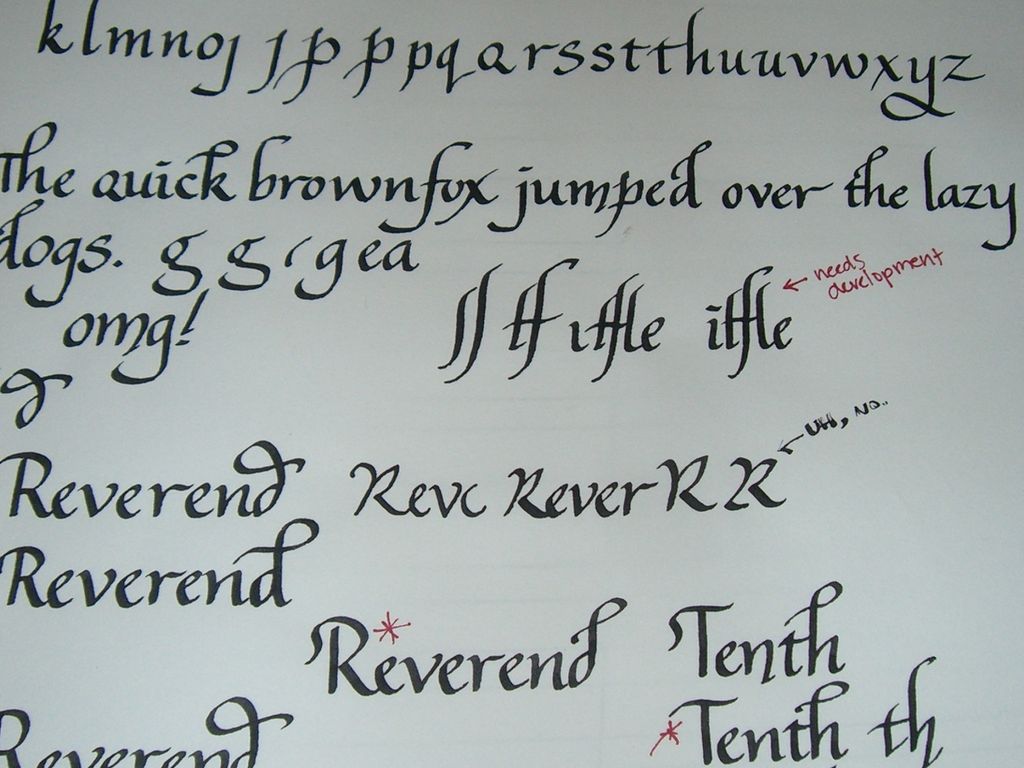 k l m n o j j p p p p q a r s s t t h u u v w x y z
The quick brown fox jumped over the lazy
dogs. g g g e a
omg!
ffle iffle ← needs development
d
Reverend Reve Rever R R ← UH, NO..
Reverend
Reverend Tenth
Reverend Tenth th